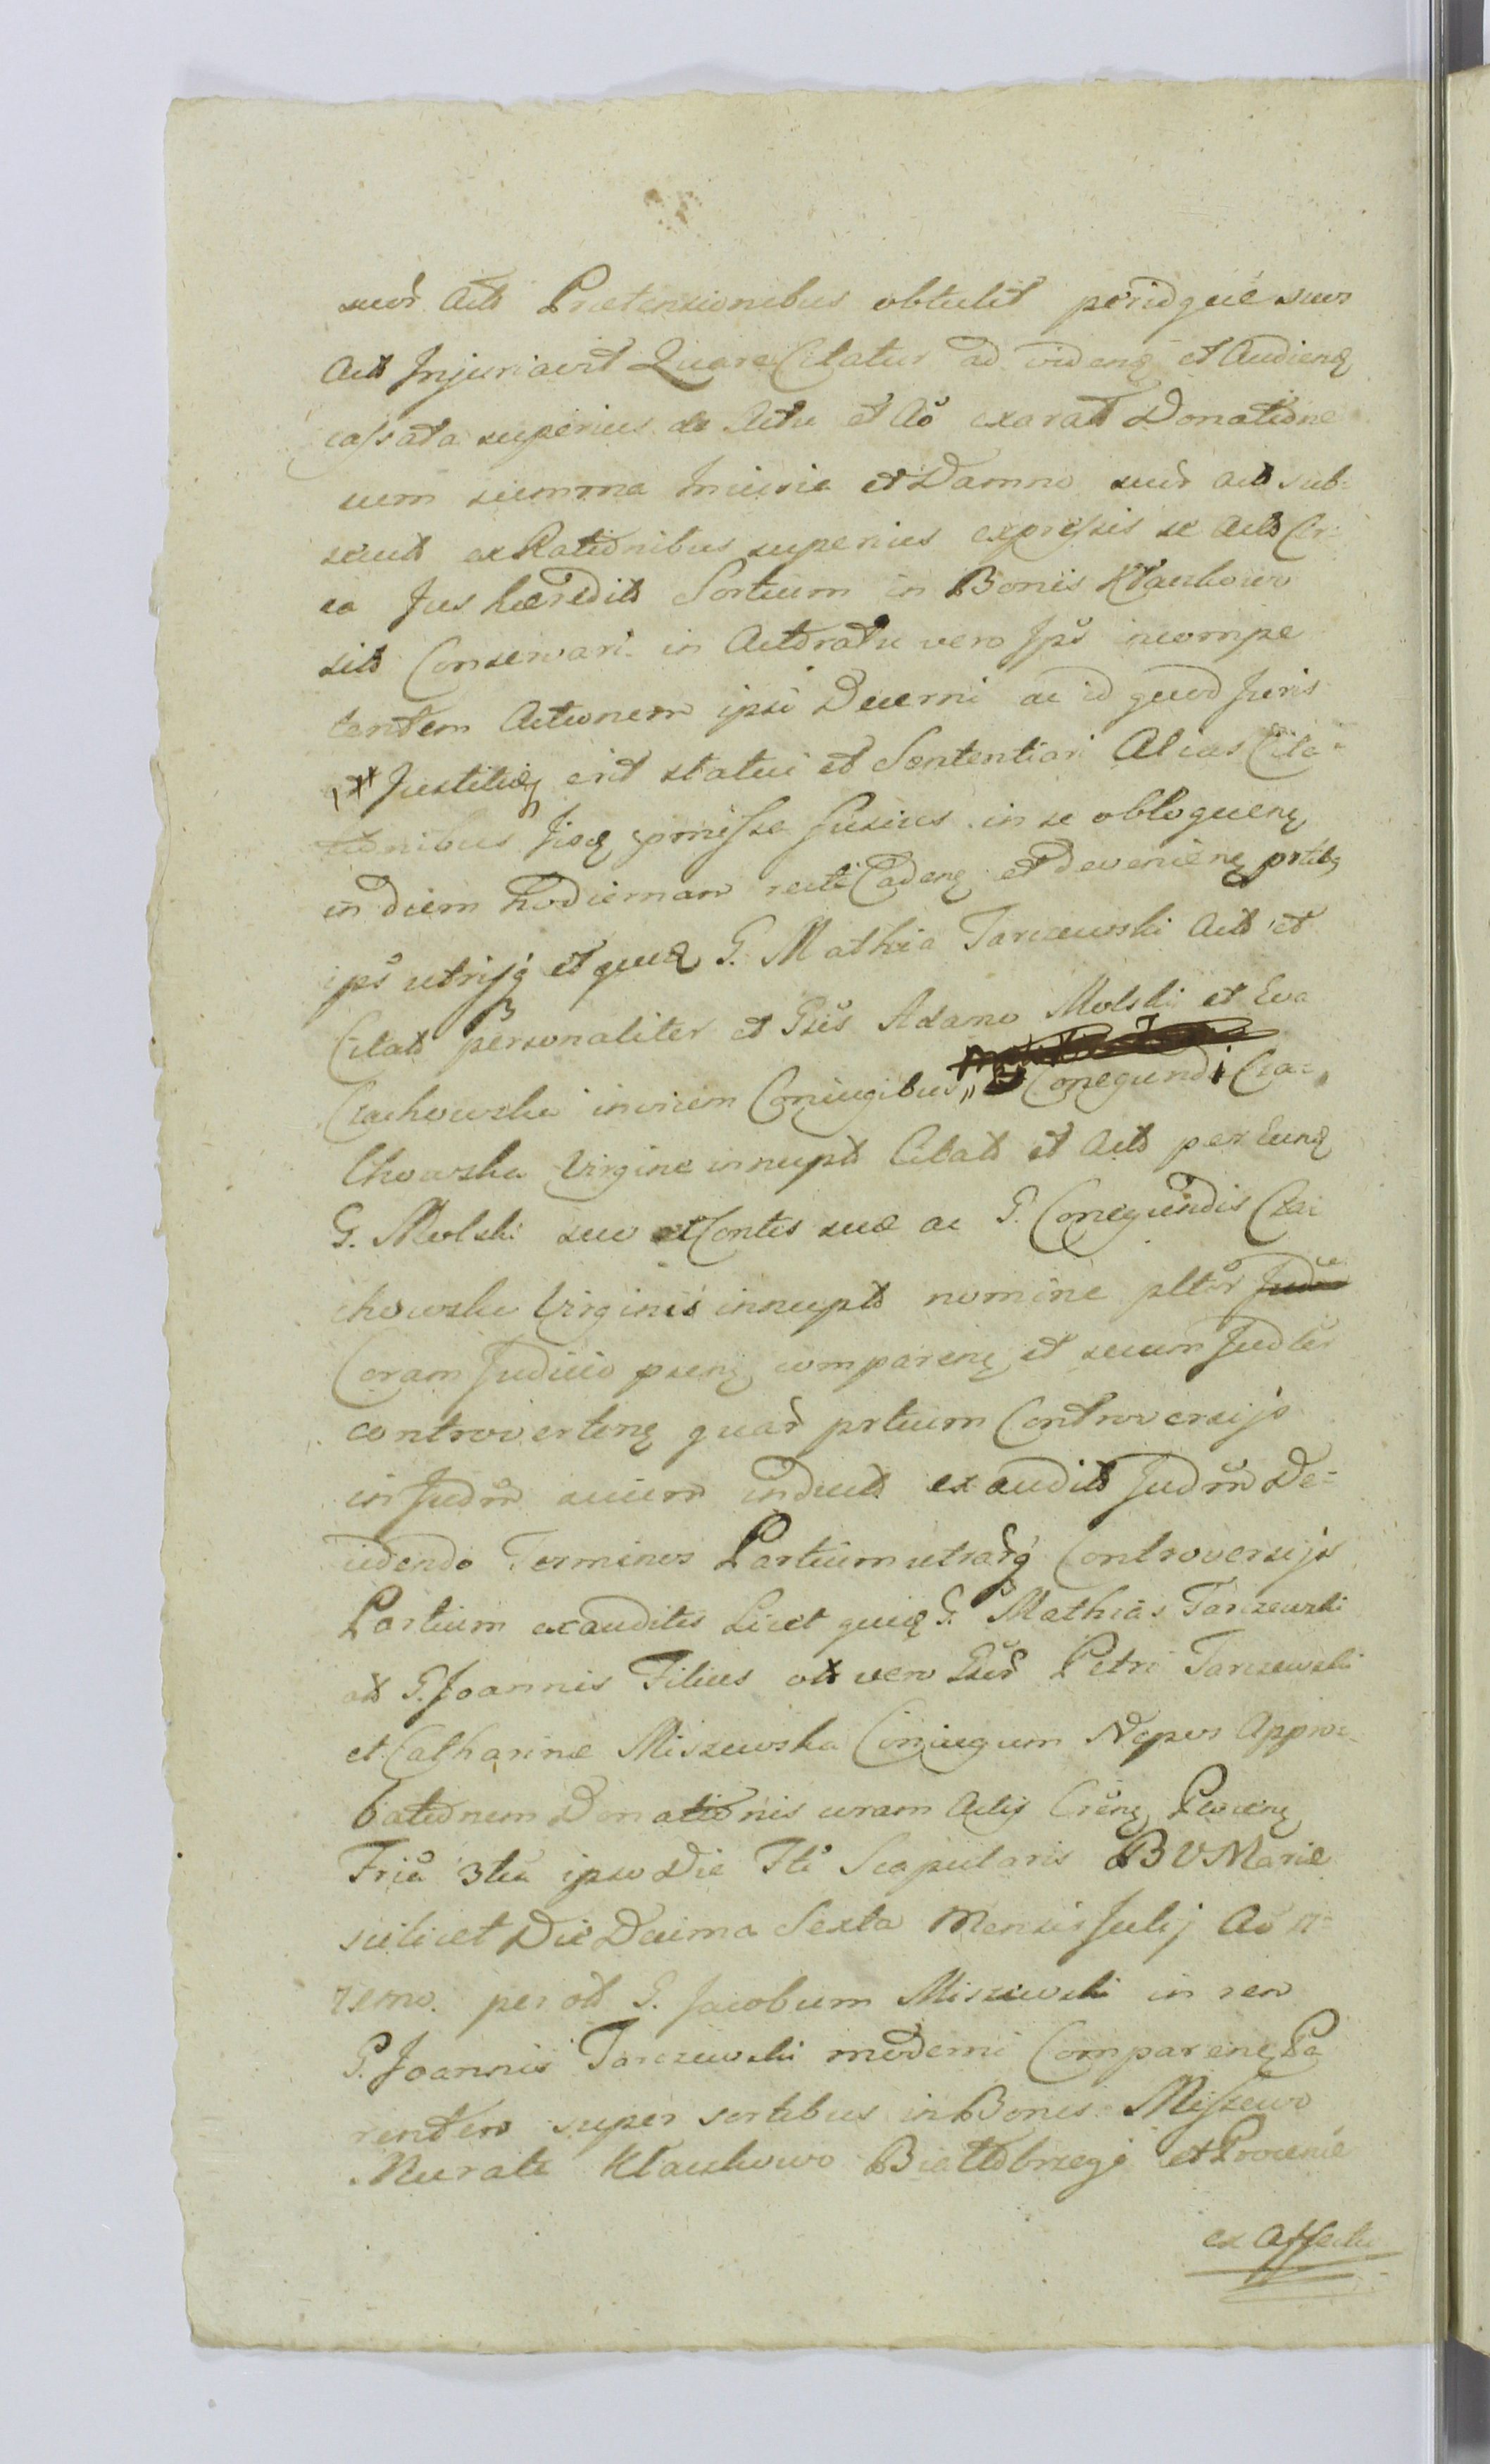 suor Acts Praetensionibus obtulit peridque suos
Acts Injuriavit Quare Citatur ad videnq et Audienq
cassata superius de Actu et Ao exarat Donatione
cum summa Iniuria et Damno suor Acts sub-
secut ex Rationibus superius expressis se Acts Cir-
ca Jus haeredit Sortium in Bonis Kłaczkowo
sit Conservari in Actoratu vero Ips incompe
tentem Actionem ipsi Decerni ac id quod Juris
et Justitiaeq erit statui et Sententiari Alias Cita-
tionibus pmissa fusius in se obloquenq
in diem hodiernam recte Cadenq et devenienq prtibq
ips utrisq et quidq G. Mathia Tarczewski Acts et
Citat personaliter et Gsis Adamo Molski et Eva
Czachowska invicem Coniugibus, Conegundi Cza-
chowska Virgine innupt Citat et Acts per Eunq
G. Molski suo et Contis suae ac G. Conegundis Cza-
chowska Virginis innupt nomine pltor
Coram Judicio psenq comparenq et secum Judlr
controvertenq quar prtium Controversijs
in Judm suum induct exaudits Judm De-
cidendo Terminos Partium utrarq Controversijs
Partium exauditis Licet quidq G. Mathias Tarczewski
ots G. Joannis Filius ots vero Gsor Petri Tarczewski
et Catharinae Miszewska Coniugum Nepos Appro-
bationem Donationis coram Actis Crenq
Fria 3tia ipso Die Fti Scapularis B V Mariae
scilicet Die Decima Sexta Mensis Julij Ao 17-
78mo. per ots G. Jacobum Miszewski in rem
G. Joannis Tarczewski moderni Comparenq Pa
rentem super sortibus in Bonis Miszewo
Murate Kłaczkowo Białłobrzegi et
ex Affectu